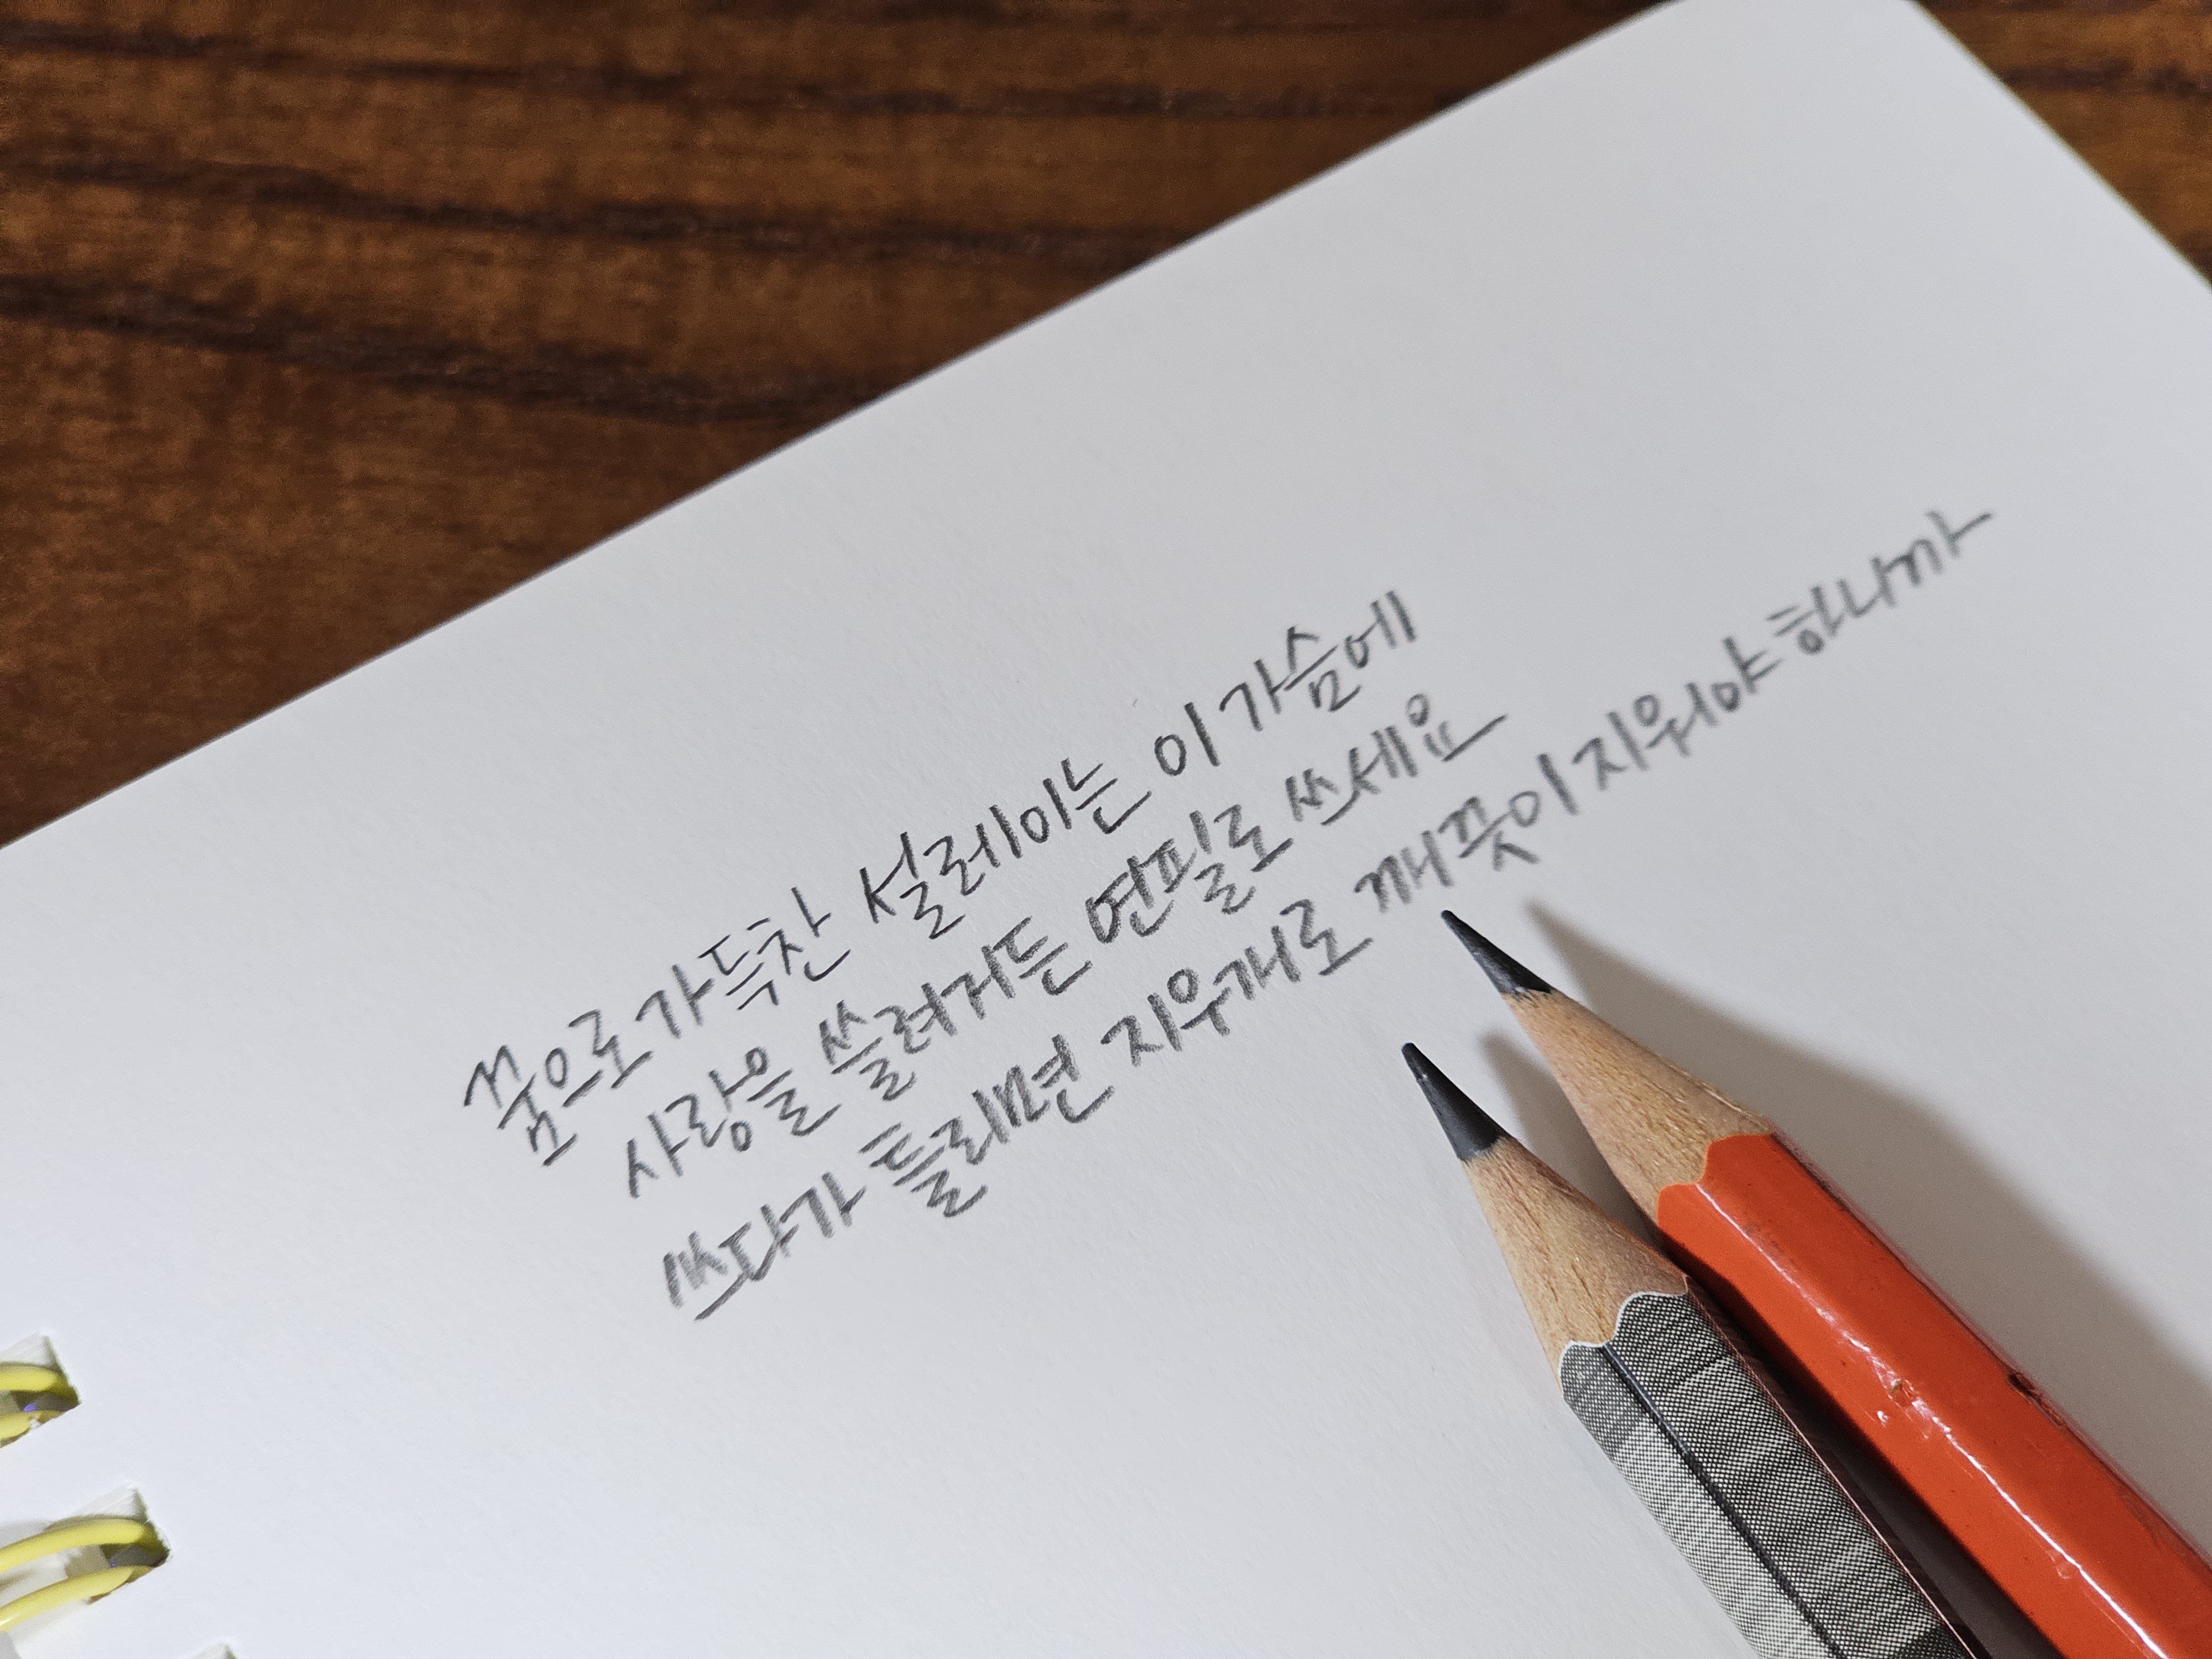 꿈으로 가득찬 설레이는 이 가슴에
사랑을 쓸려거든 연필로 쓰세요
쓰다가 틀리면 지우개로 깨끗이 지워야 하니까